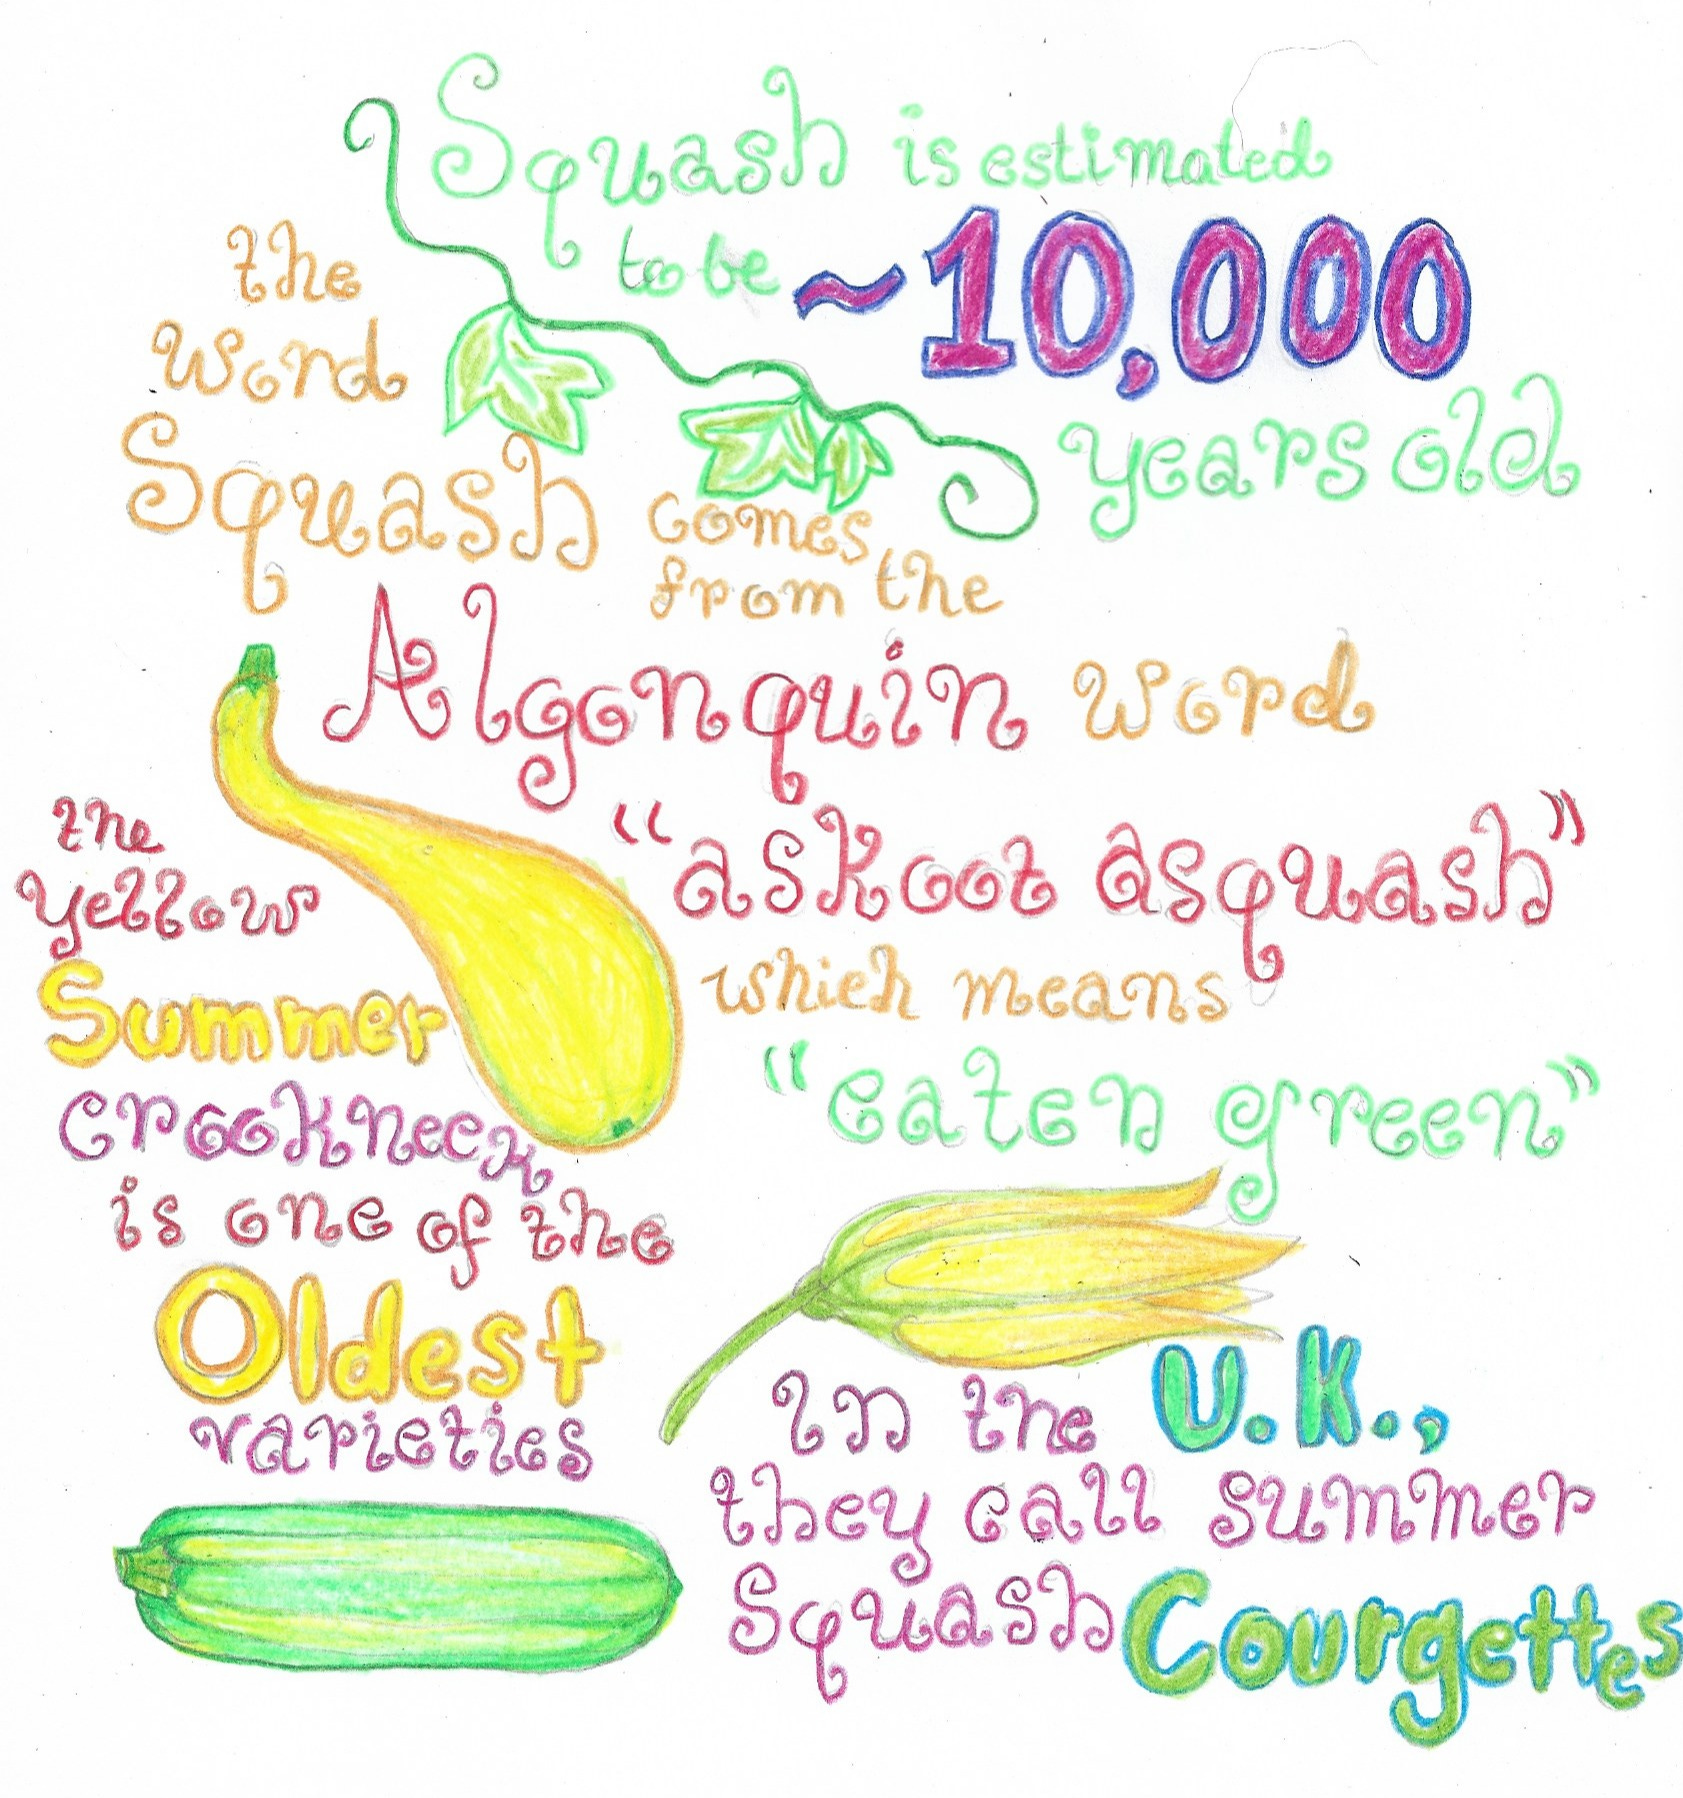 Squash is estimated
to be ~10,000
years old
the
word
Squash comes
from the
Algonquin word
"askoot asquash"
which means
"eaten green"
the
yellow
Summer
crookneck
is one of the
Oldest
varieties
In the U.K.,
they call summer
Squash Courgettes